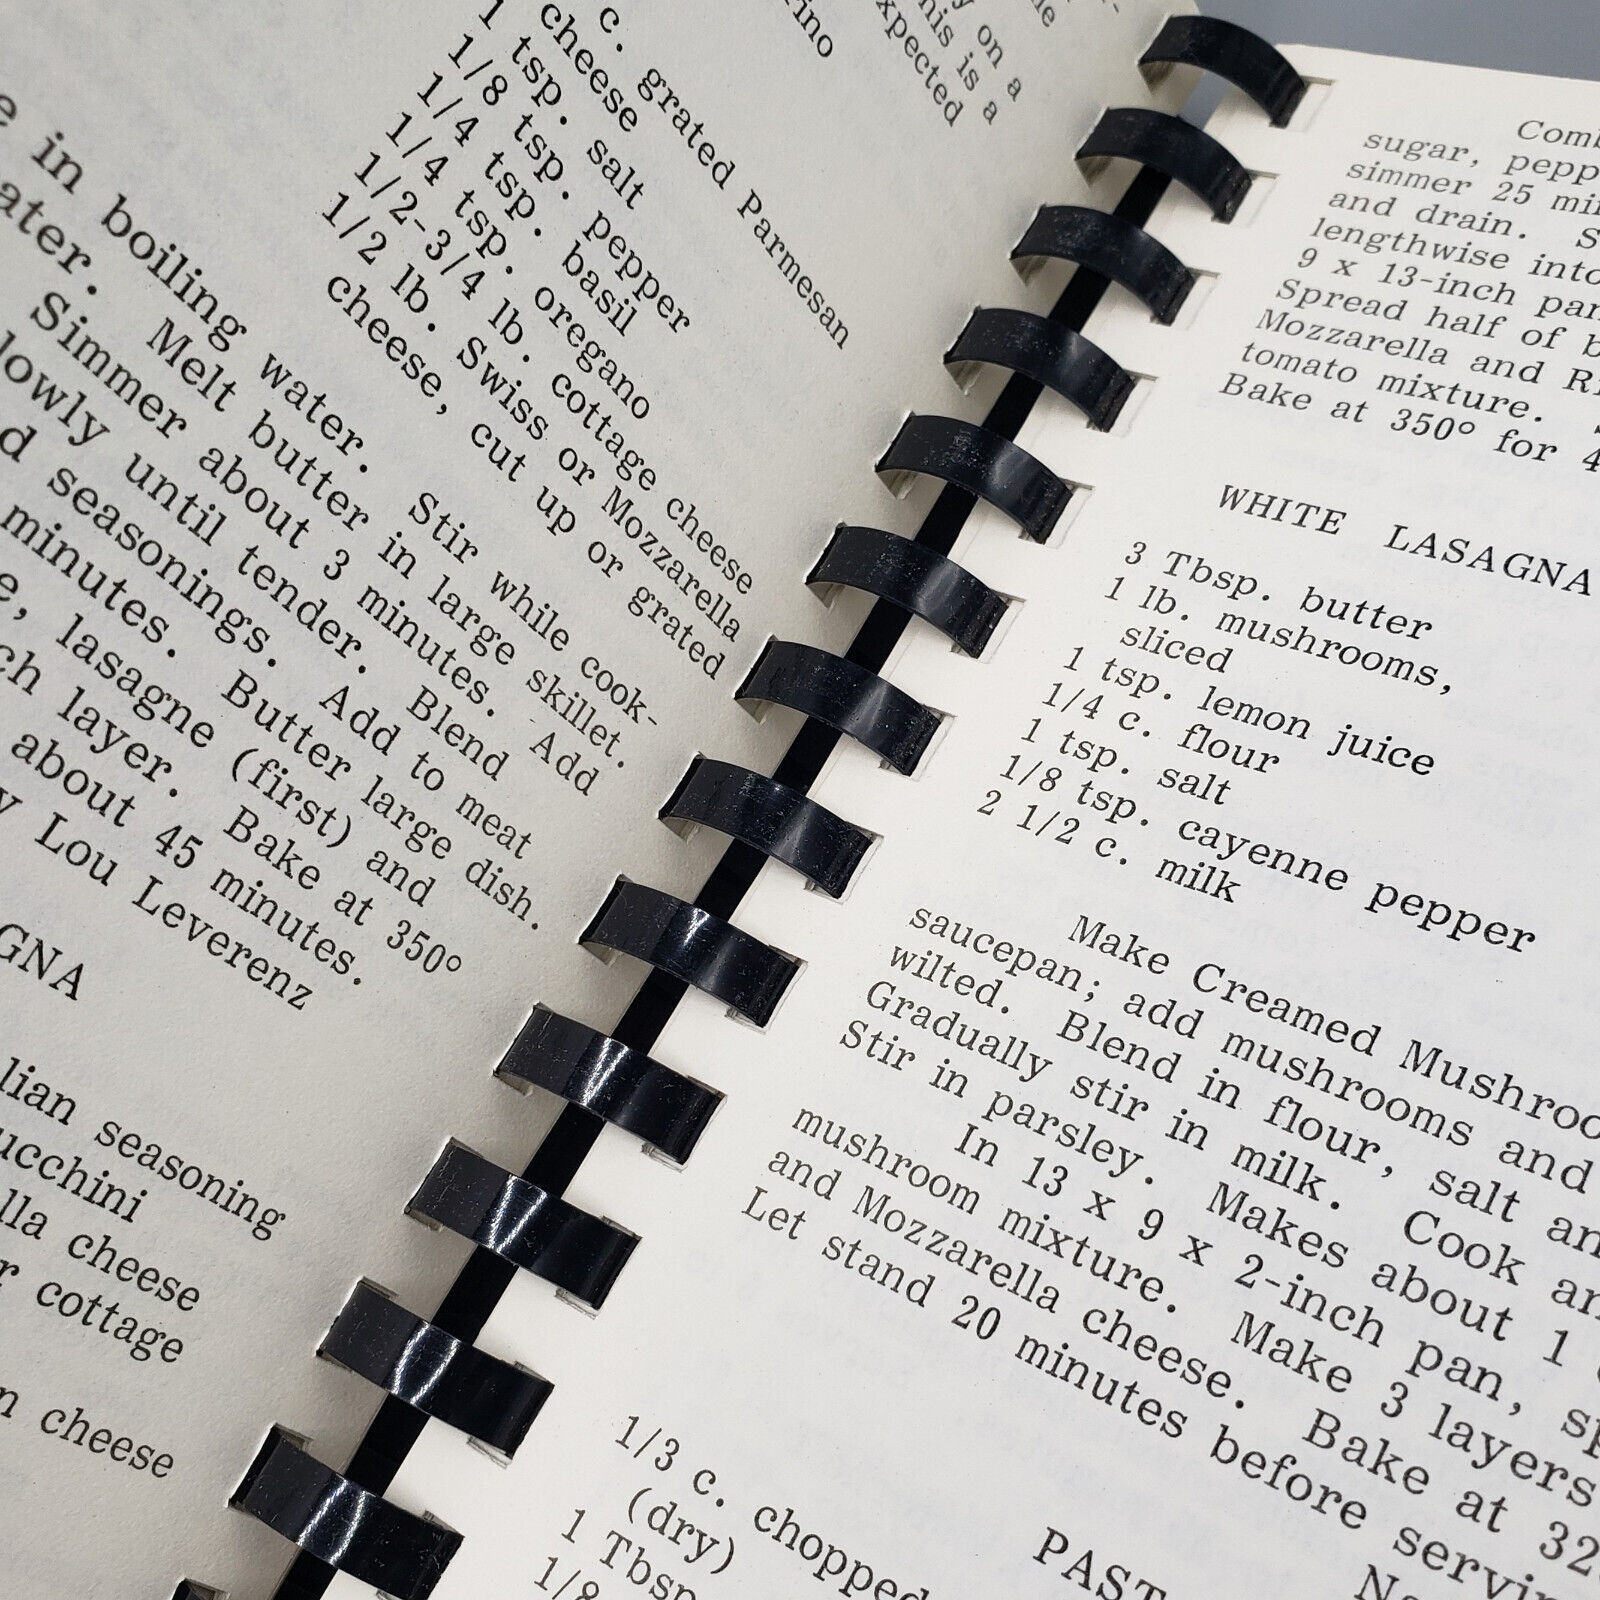 y on a
his is a
xpected
c. grated Parmesan
cheese
1 tsp. salt
1/8 tsp. pepper
1/4 tsp. basil
1/4 tsp. oregano
1/2-3/4 lb. cottage cheese
1/2 lb. Swiss or Mozzarella
cheese, cut up or grated
e in boiling water. Stir while cook-
ater. Melt butter in large skillet.
Simmer about 3 minutes. Add
lowly until tender. Blend
d seasonings. Add to meat
minutes. Butter large dish.
e, lasagne (first) and
ch layer. Bake at 350°
about 45 minutes.
y Lou Leverenz
GNA
lian seasoning
ucchini
lla cheese
r cottage
n cheese
Comb
sugar, pepp
simmer 25 mi
and drain. S
lengthwise into
9 x 13-inch pan
Spread half of b
Mozzarella and Ri
tomato mixture.
Bake at 350° for 4
WHITE LASAGNA
3 Tbsp. butter
1 lb. mushrooms,
sliced
1 tsp. lemon juice
1/4 c. flour
1 tsp. salt
1/8 tsp. cayenne pepper
2 1/2 c. milk
Make Creamed Mushroo
saucepan; add mushrooms and
wilted. Blend in flour, salt an
Gradually stir in milk. Cook an
Stir in parsley. Makes about 1
In 13 x 9 x 2-inch pan, sp
mushroom mixture. Make 3 layers
and Mozzarella cheese. Bake at 32
Let stand 20 minutes before servin
PAST
1/3 c. chopped
(dry)
1 Tbsp
1/8